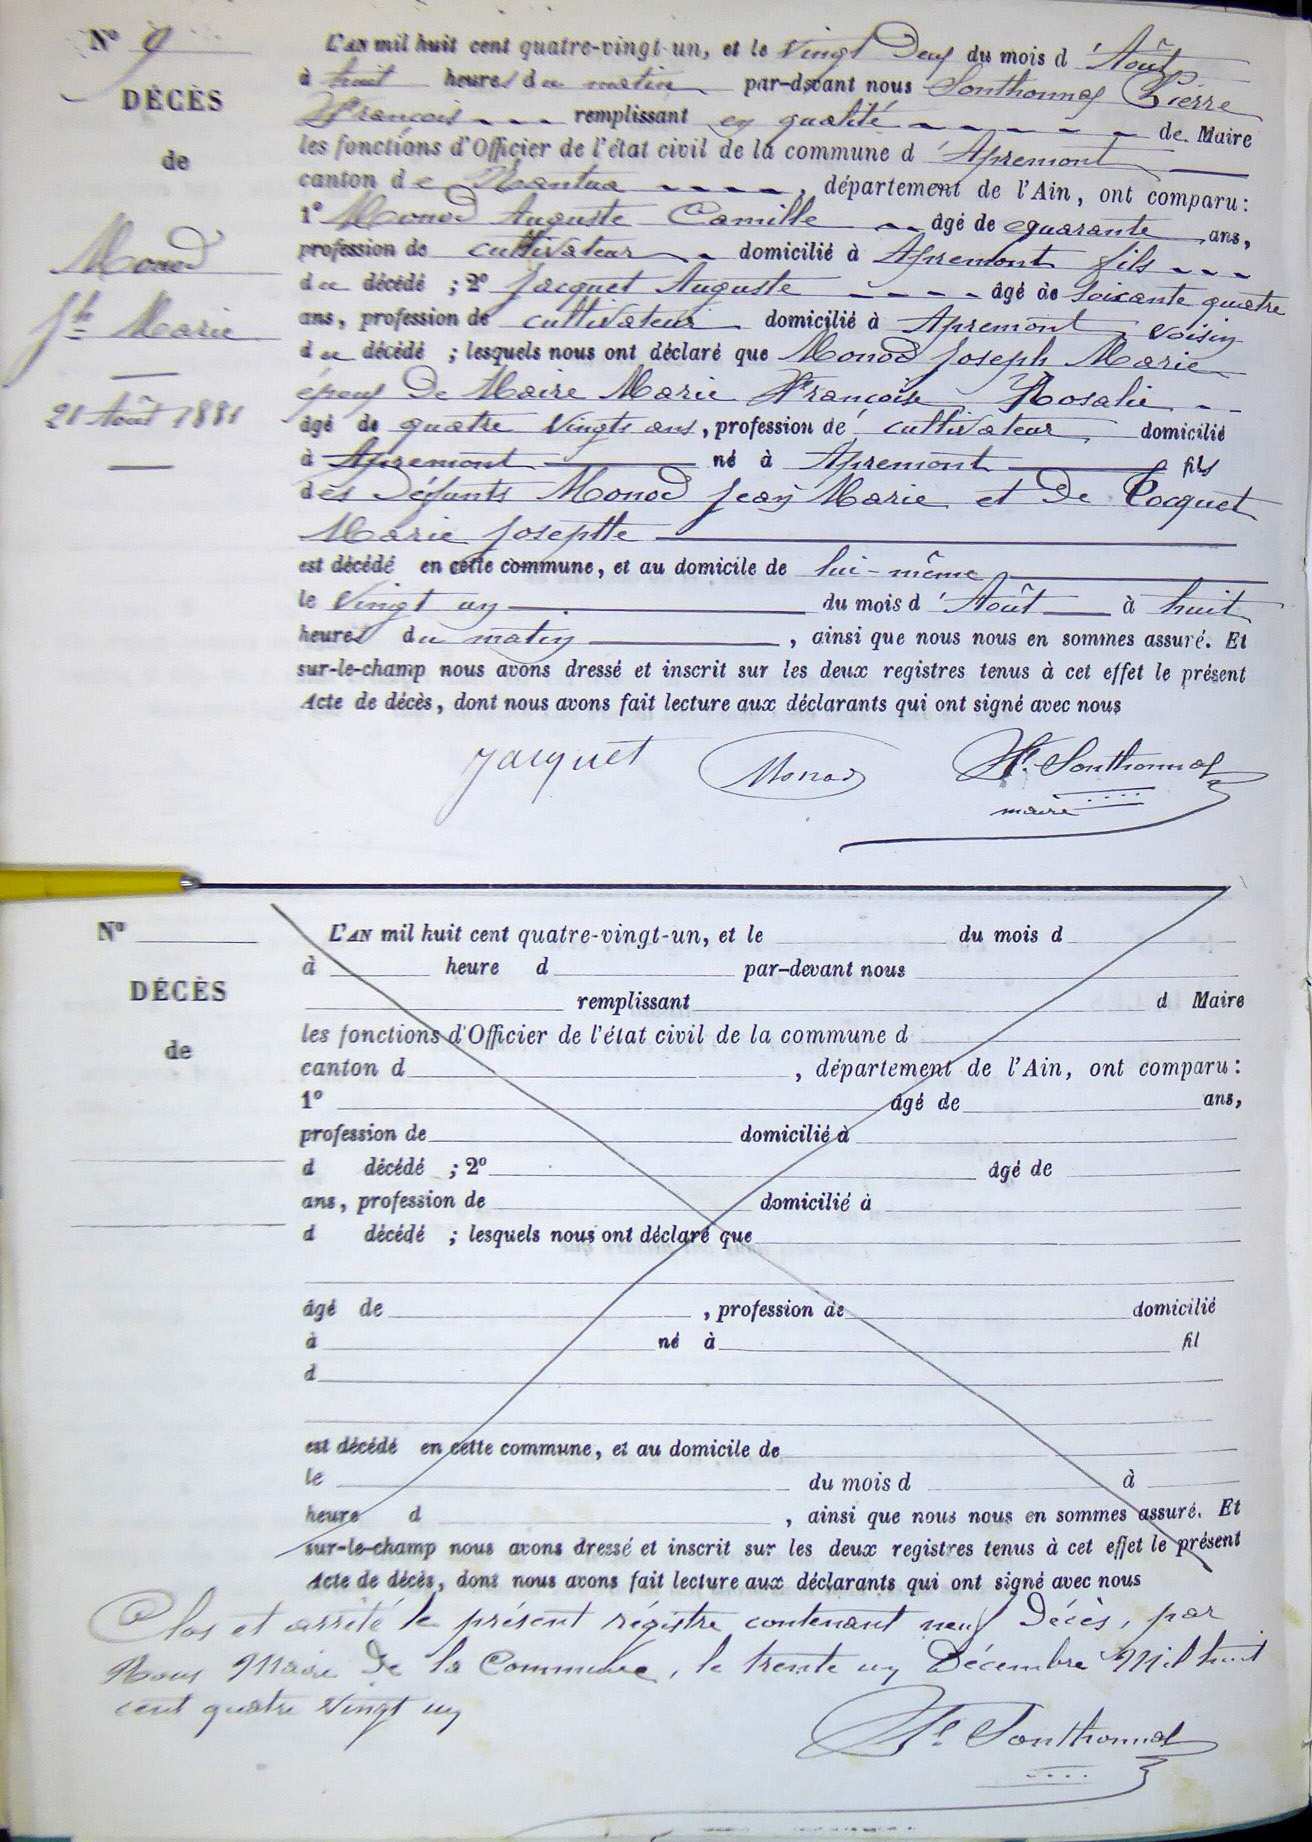 N° 9
DÉCÈS
de
Monod
Jh Marie
21 Août 1881
L'AN mil huit cent quatre-vingt-un, et le vingt Deux du mois d'Août
à huit heures du matin par-devant nous Sonthonnax Pierre
François remplissant en qualité de Maire
les fonctions d'Officier de l'état civil de la commune d'Apremont
canton de Nantua, département de l'Ain, ont comparu :
1° Monod Auguste Camille âgé de quarante ans,
profession de cultivateur domicilié à Apremont fils
du décédé ; 2° Jacquet Auguste âgé de soixante quatre
ans, profession de cultivateur domicilié à Apremont voisin
du décédé ; lesquels nous ont déclaré que Monod Joseph Marie
époux De Maire Marie Françoise Rosalie
âgé de quatre vingts ans, profession de cultivateur domicilié
à Apremont né à Apremont fils
des Défunts Monod Jean Marie et De Pocquet
Marie Josephte
est décédé en cette commune, et au domicile de lui-même
le vingt un du mois d'Août à huit
heures du matin, ainsi que nous nous en sommes assuré. Et
sur-le-champ nous avons dressé et inscrit sur les deux registres tenus à cet effet le présent
Acte de décès, dont nous avons fait lecture aux déclarants qui ont signé avec nous
Jacquet Monod Fs Sonthonnax
maire
N°
DÉCÈS
de
L'AN mil huit cent quatre-vingt-un, et le du mois d
à heure d par-devant nous
remplissant d Maire
les fonctions d'Officier de l'état civil de la commune d
canton d , département de l'Ain, ont comparu :
1° âgé de ans,
profession de domicilié à
d décédé ; 2° âgé de
ans, profession de domicilié à
d décédé ; lesquels nous ont déclaré que
âgé de , profession de domicilié
à né à fil
d
est décédé en cette commune, et au domicile de
le du mois d à
heure d , ainsi que nous nous en sommes assuré. Et
sur-le-champ nous avons dressé et inscrit sur les deux registres tenus à cet effet le présent
Acte de décès, dont nous avons fait lecture aux déclarants qui ont signé avec nous
Clos et arrêté le présent régistre contenant neuf Décès, par
Nous Maire De la Commune, le trente un Décembre Mil huit
cent quatre vingt un
Fs Sonthonnax